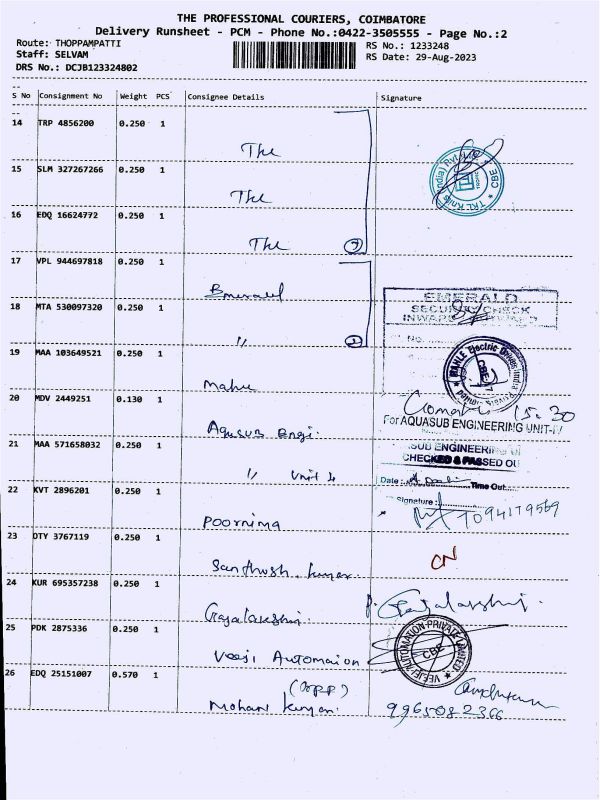 THE PROFESSIONAL COURIERS, COIMBATORE
Delivery Runsheet - PCM - Phone No.:0422-3505555 - Page No.:2
Route: THOPPAMPATTI
RS No.: 1233248
Staff: SELVAM
RS Date: 29-Aug-2023
DRS No.: DCJB123324802
S No Consignment No Weight PCS Consignee Details Signature
14 TRP 4856200 0.250 1
The
15 SLM 327267266 0.250 1
The
16 EDQ 16624772 0.250 1
The
17 VPL 944697818 0.250 1
Emerald
EMERALD
SECURITY CHECK
18 MTA 530097320 0.250 1
"
19 MAA 103649521 0.250 1
Mahle
MAHLE Electric Drives India Private Limited
CBE
20 MDV 2449251 0.130 1
Aquasub Engi
15.30
For AQUASUB ENGINEERING UNIT-IV
21 MAA 571658032 0.250 1
" Unit 4
SUB ENGINEERING
CHECKED & PASSED OU
Date: Time Out
22 KVT 2896201 0.250 1
Poornima
Signature:
23 DTY 3767119 0.250 1
Santhosh kumar
CN
24 KUR 695357238 0.250 1
Gajalakshmi
P. Gajalakshmi
25 PDK 2875336 0.250 1
Veeji Automaion
VEEJI AUTOMATION PRIVATE LIMITED
CBE
26 EDQ 25151007 0.570 1
Mohan kumar
9965082366